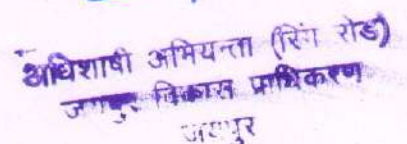 अधिशाषी अभियन्ता (रिंग रोड)
जयपुर विकास प्राधिकरण
जयपुर